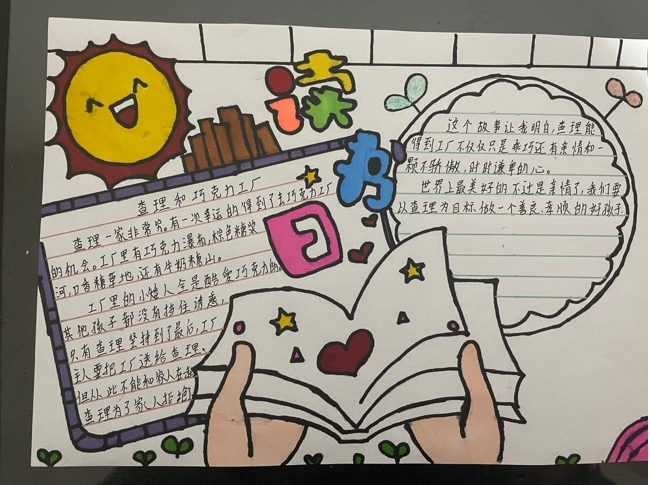 读书日
查理和巧克力工厂
查理一家非常穷。有一次幸运的得到了去巧克力工厂
的机会。工厂里有巧克力瀑布,棕色糖浆
河,口香糖草地,还有牛奶糖山。
工厂里的小矮人全是酷爱巧克力的
其他孩子都没有挡住诱惑
只有查理坚持到了最后,工厂
主人要把工厂送给查理。
但从此不能和家人在
查理为了家人拒绝
这个故事让我明白,查理能
得到工厂不仅仅只是乖巧还有亲情和一
颗不骄傲,时时谦卑的心。
世界上最美好的不过是亲情了,我们要
以查理为目标,做一个善良、孝顺的好孩子